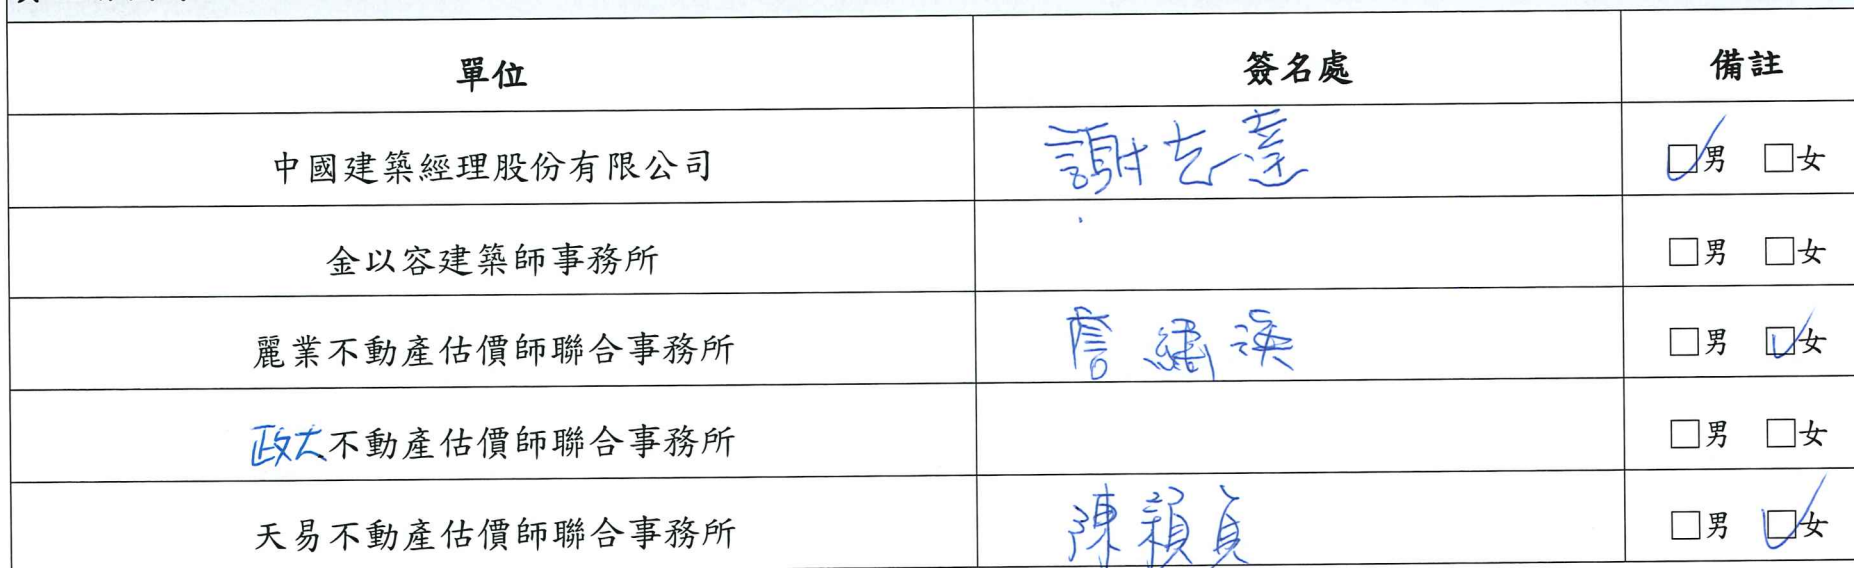 單位 簽名處 備註
中國建築經理股份有限公司 謝志達 ☑男 □女
金以容建築師事務所 □男 □女
麗業不動產估價師聯合事務所 詹繡瑛 □男 ☑女
政大不動產估價師聯合事務所 □男 □女
天易不動產估價師聯合事務所 陳穎貞 □男 ☑女